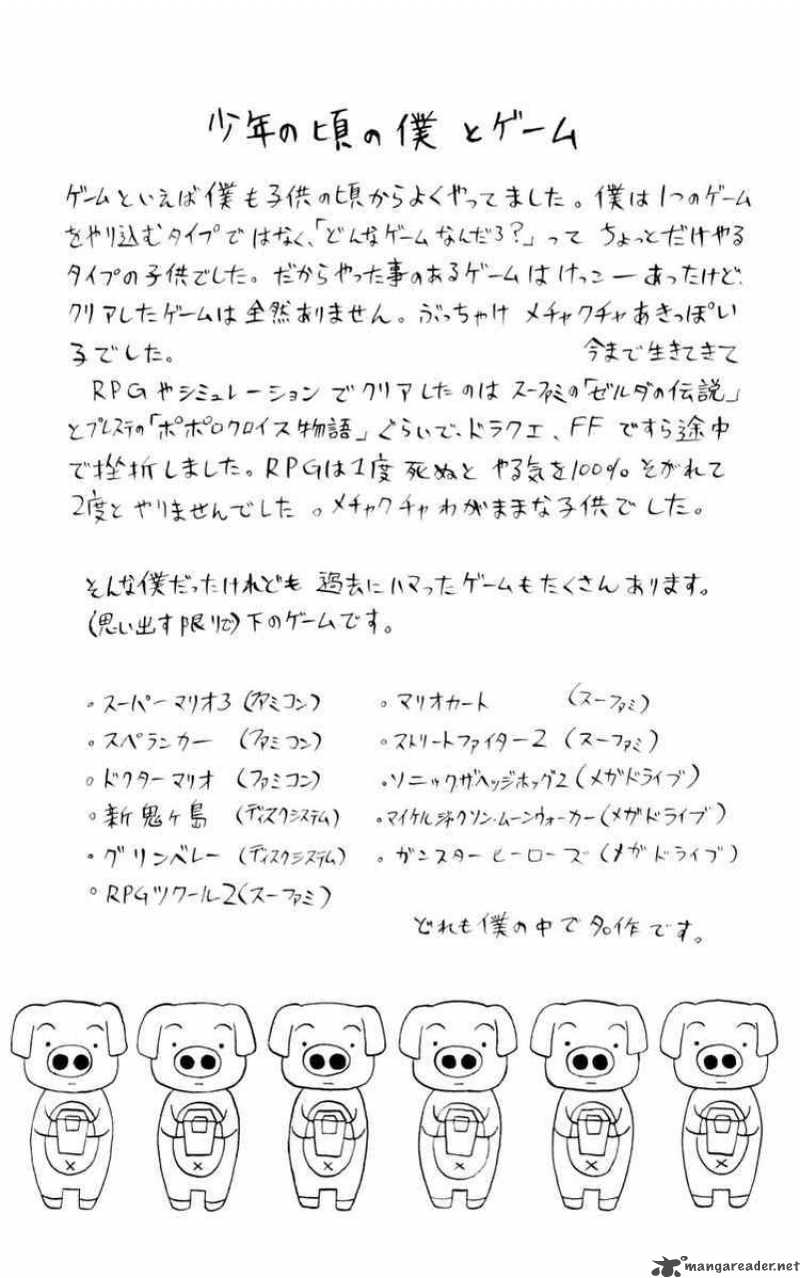 少年の頃の僕とゲーム
ゲームといえば僕も子供の頃からよくやってました。僕は1つのゲーム
をやり込むタイプではなく、「どんなゲームなんだろ?」って ちょっとだけやる
タイプの子供でした。だからやった事のあるゲームはけっこーあったけど、
クリアしたゲームは全然ありません。ぶっちゃけ メチャクチャあきっぽい
子でした。 今まで生きてきて
RPGやシミュレーションでクリアしたのは スーファミの「ゼルダの伝説」
とプレステの「ポポロクロイス物語」ぐらいで、ドラクエ、FFですら途中
で挫折しました。RPGは1度死ぬと やる気を100%そがれて
2度とやりませんでした。メチャクチャわがままな子供でした。
そんな僕だったけれども 過去にハマったゲームもたくさんあります。
(思い出す限りで)下のゲームです。
・スーパーマリオ3 (ファミコン)
・スペランカー (ファミコン)
・ドクターマリオ (ファミコン)
・新鬼ヶ島 (ディスクシステム)
・グリンベレー (ディスクシステム)
・RPGツクール2(スーファミ)
・マリオカート (スーファミ)
・ストリートファイター2 (スーファミ)
・ソニックザヘッジホッグ2(メガドライブ)
・マイケルジャクソン・ムーンウォーカー(メガドライブ)
・ガンスターヒーローズ(メガドライブ)
どれも僕の中で名作です。
mangareader.net